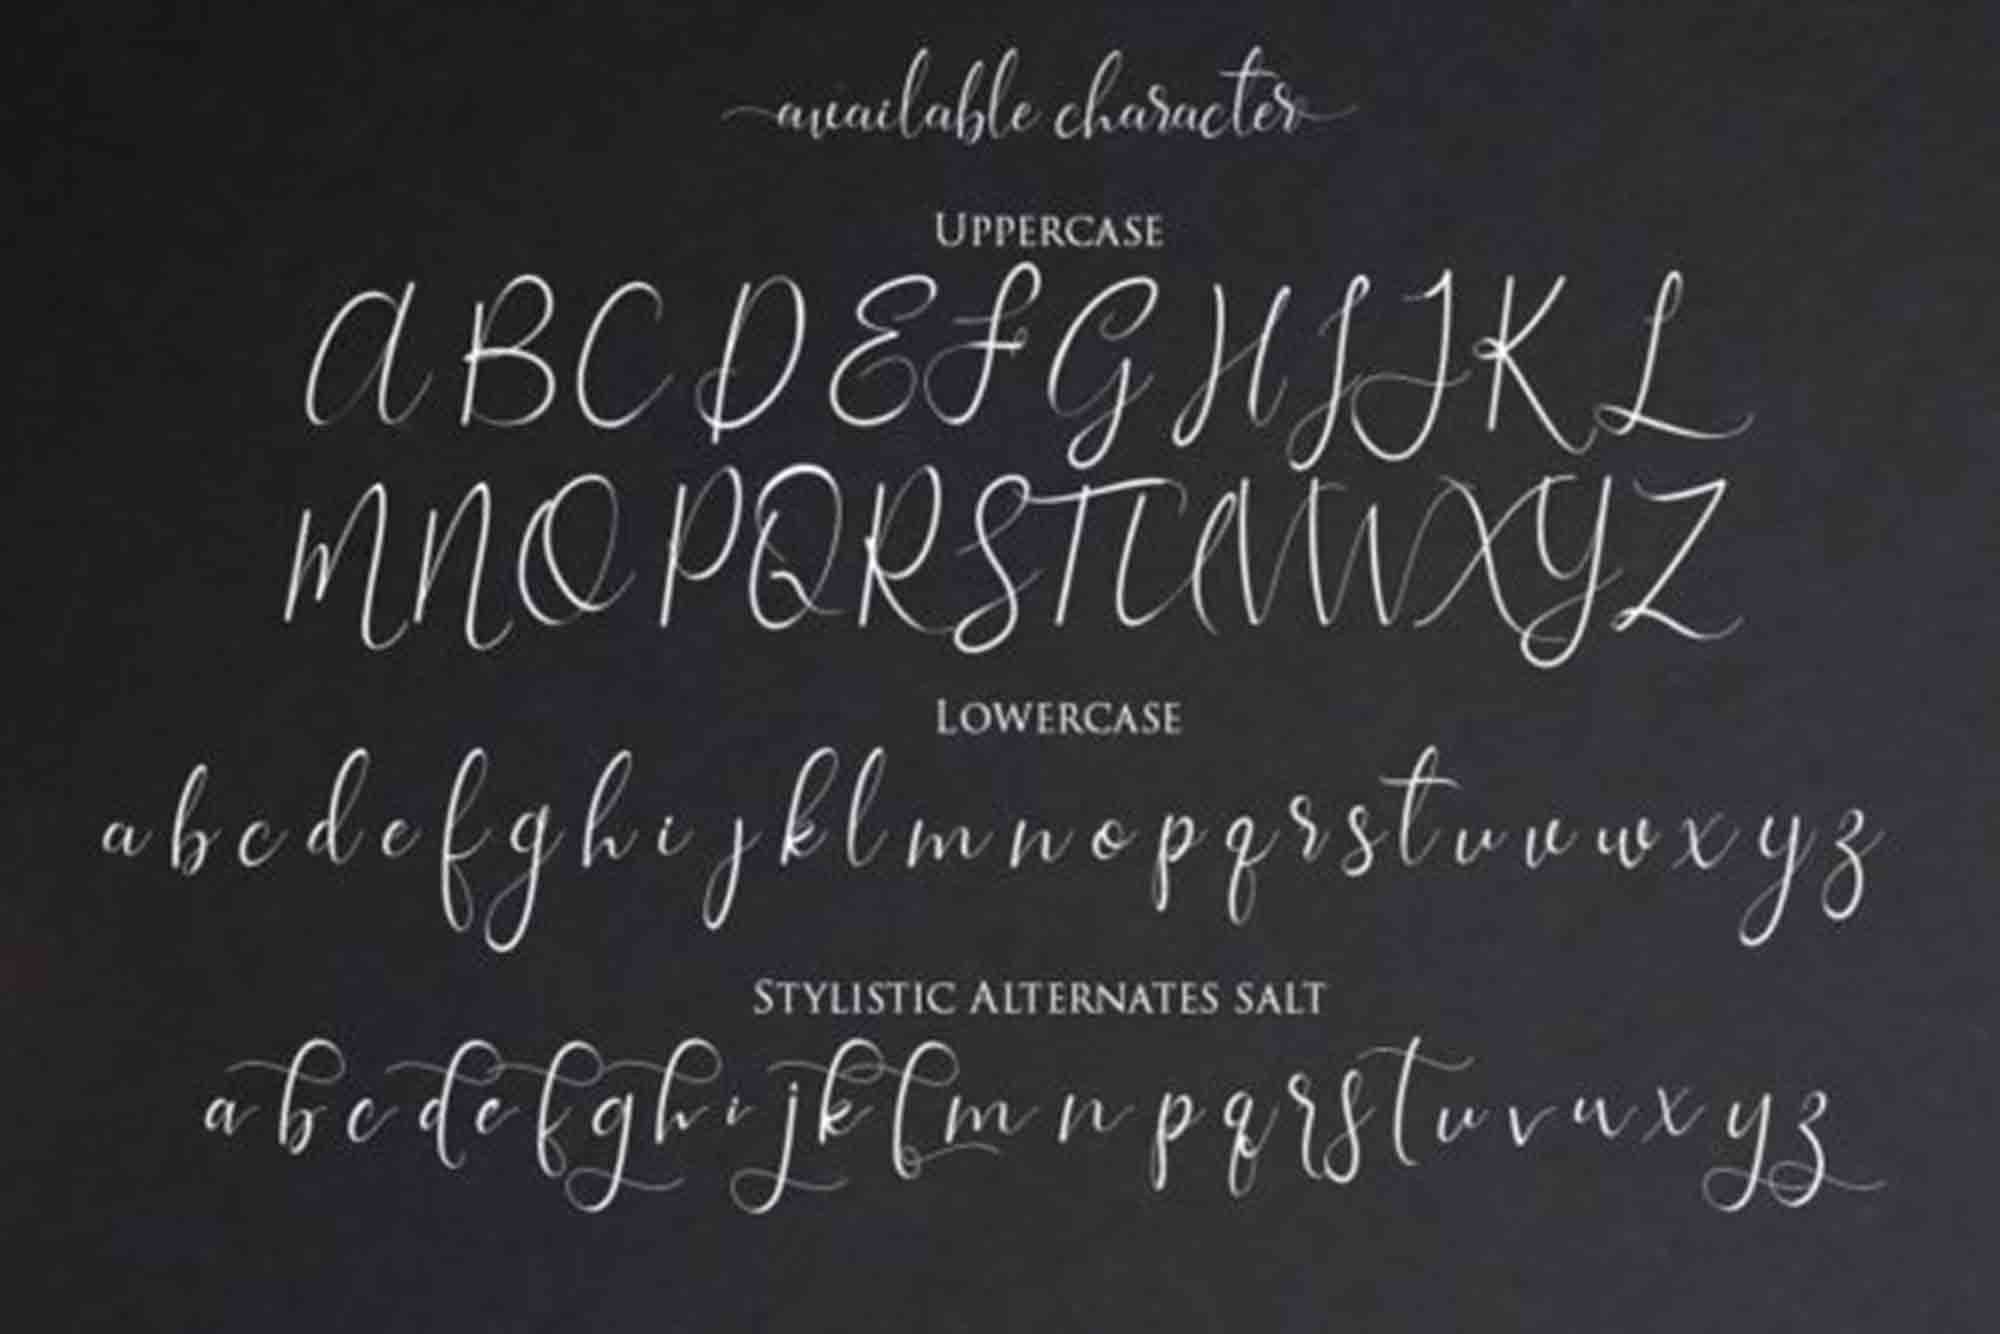 available character
UPPERCASE
A B C D E F G H I J K L
M N O P Q R S T U V W X Y Z
LOWERCASE
a b c d e f g h i j k l m n o p q r s t u v w x y z
STYLISTIC ALTERNATES SALT
a b c d e f g h i j k l m n p q r s t u v w x y z